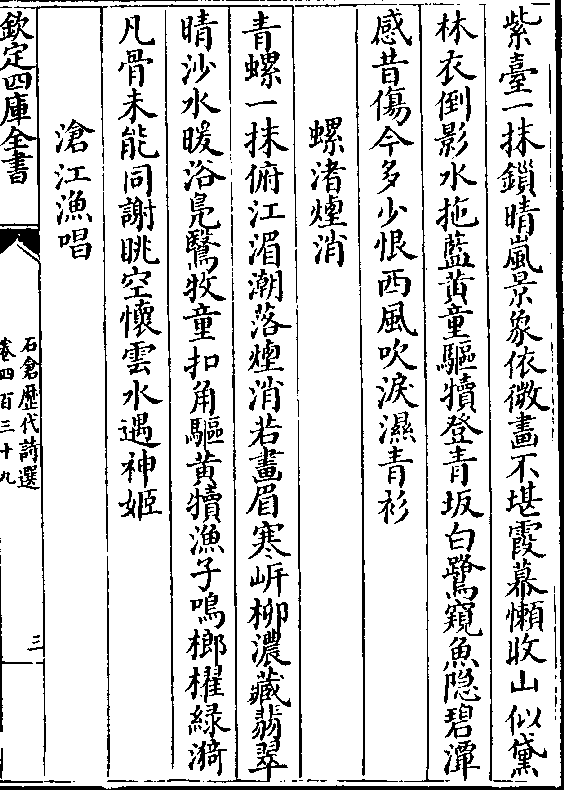 紫臺一抹鎖晴嵐景象依微畫不堪霞幕懶收山似黛
林衣倒影水拖藍黄童驅犢登青坂白鷺窺魚隠碧潭
感昔傷今多少恨西風吹淚濕青衫
螺渚煙消
青螺一抹俯江湄潮落煙消若畫眉寒岸柳濃藏翡翠
晴沙水暖浴鳧鷖牧童扣角驅黄犢漁子鳴榔櫂緑漪
凡骨未能同謝眺空懷雲水遇神姬
滄江漁唱
欽定四庫全書
石倉歷代詩選
卷四百三十九
三